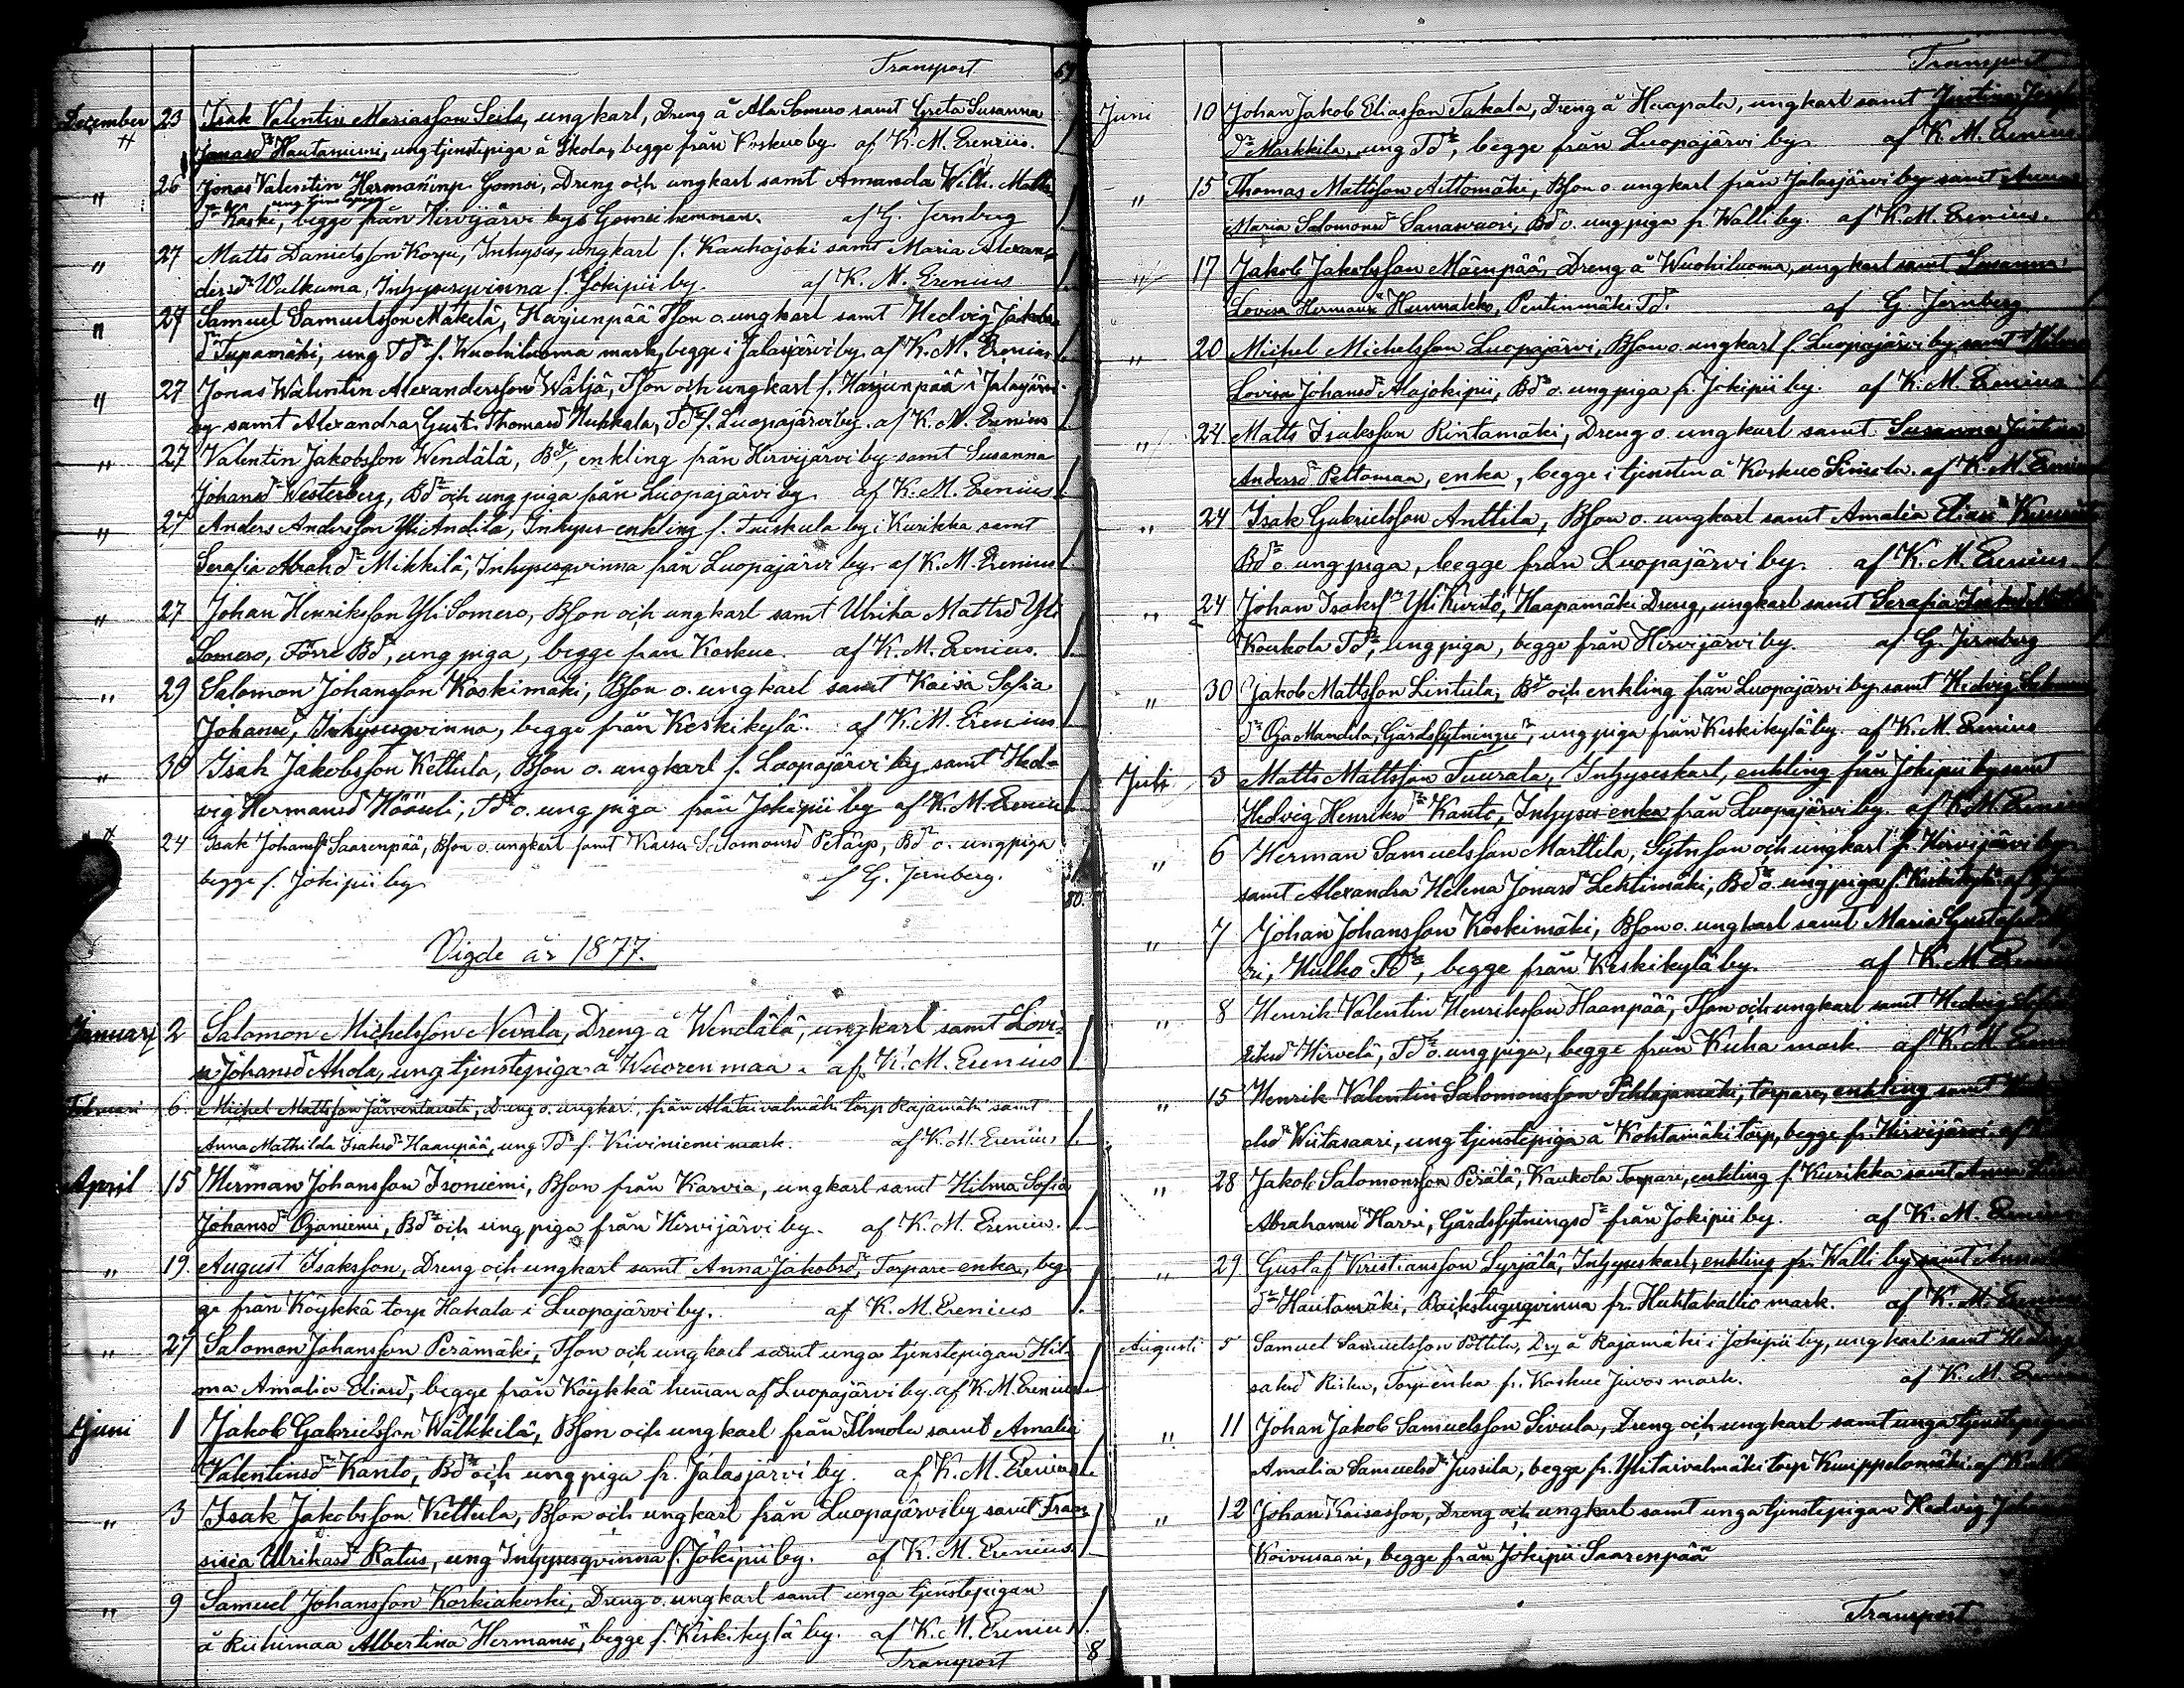 Transport 69
December 23 Isak Valentin Mariasson Seila, ungkarl, Dreng å Ala Somero samt Greta Susanna
Jonasdr Hautaniemi, ung tjenstepiga å Skola, begge från Koskue by af K. M. Erenius. 1
" 26 Jonas Valentin Hermaninp. Gomsi, Dreng och ungkarl samt Amanda Wilh. Matts
ung tjenstepiga
dr Koski, begge från Hirvijärvi by & Gomsi hemman. af G. Jernberg
" 27 Matts Danielsson Korpu, Inhyses, ungkarl f. Kauhajoki samt Maria Alexan-
dersdr Walkama, Inhysesqvinna f. Jokipii by. af K. M. Erenius 1.
" 27 Samuel Samuelsson Mäkelä, Harjunpää Tson o. ungkarl samt Hedvig Jakobs
dr Tupamäki, ung Tdr f. Wuohiluoma mark, begge i Jalasjärvi by. af K. M. Erenius 1.
" 27 Jonas Walentin Alexandersson Wäljä, Tson och ungkarl f. Harjunpää i Jalasjärvi
by samt Alexandra Gust. Thomasdr Hukkala, Tdr f. Luopajärvi by. af K. M. Erenius 1.
" 27 Valentin Jakobsson Wendälä, Bde, enkling från Hirvijärvi by samt Susanna
Johansdr Westerberg, Bdr och ung piga från Luopajärvi by. af K. M. Erenius 1.
" 27 Anders Andersson Yli Andila, Inhyses enkling f. Tuiskula by i Kurikka samt
Serafia Abrahdr Mikkilä, Inhysesqvinna från Luopajärvi by. af K. M. Erenius 1.
" 27 Johan Henriksson Yli Somero, Bson och ungkarl samt Ulrika Mattsdr Yli
Somero, Förre Bdr, ung piga, begge från Koskue. af K. M. Erenius. 1.
" 29 Salomon Johansson Koskimäki, Bson o. ungkarl samt Kaisa Sofia
Johansdr, Inhysesqvinna, begge från Keskikylä. af K. M. Erenius 1.
" 30 Isak Jakobsson Kettula, Bson o. ungkarl f. Luopajärvi by samt Hed-
vig Hermansdr Hööneli, Tdr o. ung piga från Jokipii by af K. M. Erenius
24 Isak Johanss Saarenpää, Bson o. ungkarl samt Kaisa Salomonsdr Petäys, Bdr o. ungpiga
begge f. Jokipii by af G. Jernberg. 1
80.
Vigde år 1877.
Januari 2 Salomon Michelsson Nevala, Dreng å Wendälä, ungkarl samt Lovi-
sa Johansdr Ahola, ung tjenstepiga å Wuorenmaa. af K. M. Erenius 1
Februari 6. Michel Mattsson Järventausta, Dreng o. ungkarl, från Alataivalmäki torp Rajamäki samt
Anna Mathilda Isaksdr Haanpää, ung Tdr f. Kiviniemi mark. af K. M. Erenius 1.
April 15 Herman Johansson Isoniemi, Bson från Karvia, ungkarl samt Hilma Sofia
Johansdr Ojaniemi, Bdr och ung piga från Hirvijärvi by. af K. M. Erenius. 1.
" 19. August Isaksson, Dreng och ungkarl samt Anna Jakobsdr, Torpare enka, beg-
ge från Köykkä torp Hakala i Luopajärvi by. af K. M. Erenius 1.
" 27 Salomon Johansson Perämäki, Tson och ungkarl samt unga tjenstepigan Hil-
ma Amalia Eliasdr, begge från Köykkä hemman af Luopajärvi by. af K. M. Erenius
Juni 1 Jakob Gabrielsson Wälkkilä, Bson och ungkarl från Ilmola samt Amalia
Valentinsdr Kanto, Bdr och ung piga fr. Jalasjärvi by. af K. M. Erenius 1.
" 3 Isak Jakobsson Kettula, Bson och ungkarl från Luopajärvi by samt Fran-
sisca Ulrikasdr Ratus, ung Inhysesqvinna f. Jokipii by. af K. M. Erenius 1
" 9 Samuel Johansson Korkiakoski, Dreng o. ungkarl samt unga tjenstepigan
å Riihimaa Albertina Hermansdr, begge f. Keskikylä by. af K. M. Erenius 1.
Transport 8
Transport
Juni 10 Johan Jakob Eliasson Takala, Dreng å Haapala, ungkarl samt Justina
dr Markkila, ung Tdr, begge från Luopajärvi by af K. M. Erenius
" 15 Thomas Mattsson Aittomäki, Bson o. ungkarl från Jalasjärvi by samt Anna
Maria Salomonsdr Sanasvuori, Bdr o. ung piga fr. Walli by. af K. M. Erenius.
" 17 Jakob Jakobsson Mäenpää, Dreng å Wuohiluoma, ungkarl samt Susanna
Lovisa Hermansdr Hunnakko, Pentinmäki Tdr. af G. Jernberg
" 20 Michel Michelsson Luopajärvi, Bson o. ungkarl f. Luopajärvi by samt Hilma
Lovisa Johansdr Alajokipii, Bdr o. ung piga fr. Jokipii by. af K. M. Erenius
" 24 Matts Isaksson Rintamäki, Dreng o. ungkarl samt Susanna Justina
Andersdr Peltomaa, enka, begge i tjensten å Koskue af K. M. Erenius
" 24 Isak Gabrielsson Anttila, Bson o. ungkarl samt Amalia Eliasdr
Bdr o. ung piga, begge från Luopajärvi by. af K. M. Erenius
" 24 Johan Isakss Yli Kivistö, Haapamäki Dreng, ungkarl samt Serafia
Koukola Tdr, ung piga, begge från Hirvijärvi by. af G. Jernberg
" 30 Jakob Mattsson Lintula, Bde och enkling från Luopajärvi by samt Hedvig
dr Oja Mandila, Gårdsfytningsdr, ung piga från Keskikylä by. af K. M. Erenius
Juli 3 Matts Mattsson Tuurala, Inhyseskarl, enkling från Jokipii by samt
Hedvig Henriksdr Kanto, Inhyses enka från Luopajärvi by. af K. M. Erenius
" 6 Herman Samuelsson Marttila, Sytnson och ungkarl fr. Hirvijärvi by
samt Alexandra Helena Jonasdr Lehtimäki, Bdr o. ung piga f. Keskikylä af
" 7 Johan Johansson Koskimäki, Bson o. ungkarl samt Maria
ri, Hulko Tdr, begge från Keskikylä by. af K. M. Erenius
" 8 Henrik Valentin Henriksson Haanpää, Tson och ungkarl samt Hedvig
riksdr Hirvelä, Tdr o. ung piga, begge från Kuha mark. af K. M.
" 15 Henrik Valentin Salomonsson Pihlajamäki, torpare, enkling samt
elsdr Wiitasaari, ung tjenstepiga å Kohtamäki torp, begge fr. Hirvijärvi. af
" 28 Jakob Salomonsson Perälä, Kaukola Torpare, enkling f. Kurikka samt Anna
Abrahamsdr Harri, Gårdsfytningsdr från Jokipii by. af K. M. Erenius
" 29 Gustaf Kristiansson Syrjälä, Inhyseskarl, enkling fr. Walli by samt Anna
dr Hautamäki, Backstuguqvinna fr. Huhtakallio mark. af K. M.
Augusti 5 Samuel Samuelsson Pöttilä, Drg å Rajamäki i Jokipii by, ungkarl samt Hedvig
saksdr Risku, Torpenka fr. Koskue Juvos mark. af K. M.
" 11 Johan Jakob Samuelsson Sivula, Dreng och ungkarl samt unga tjenstepigan
Amalia Samuelsdr Jussila, begge fr. Ylitaivalmäki torp Kuuppelomäki. af
" 12 Johan Kaisasson, Dreng och ungkarl samt unga tjenstepigan Hedvig
Koivusaari, begge från Jokipii Saarenpää
Transport